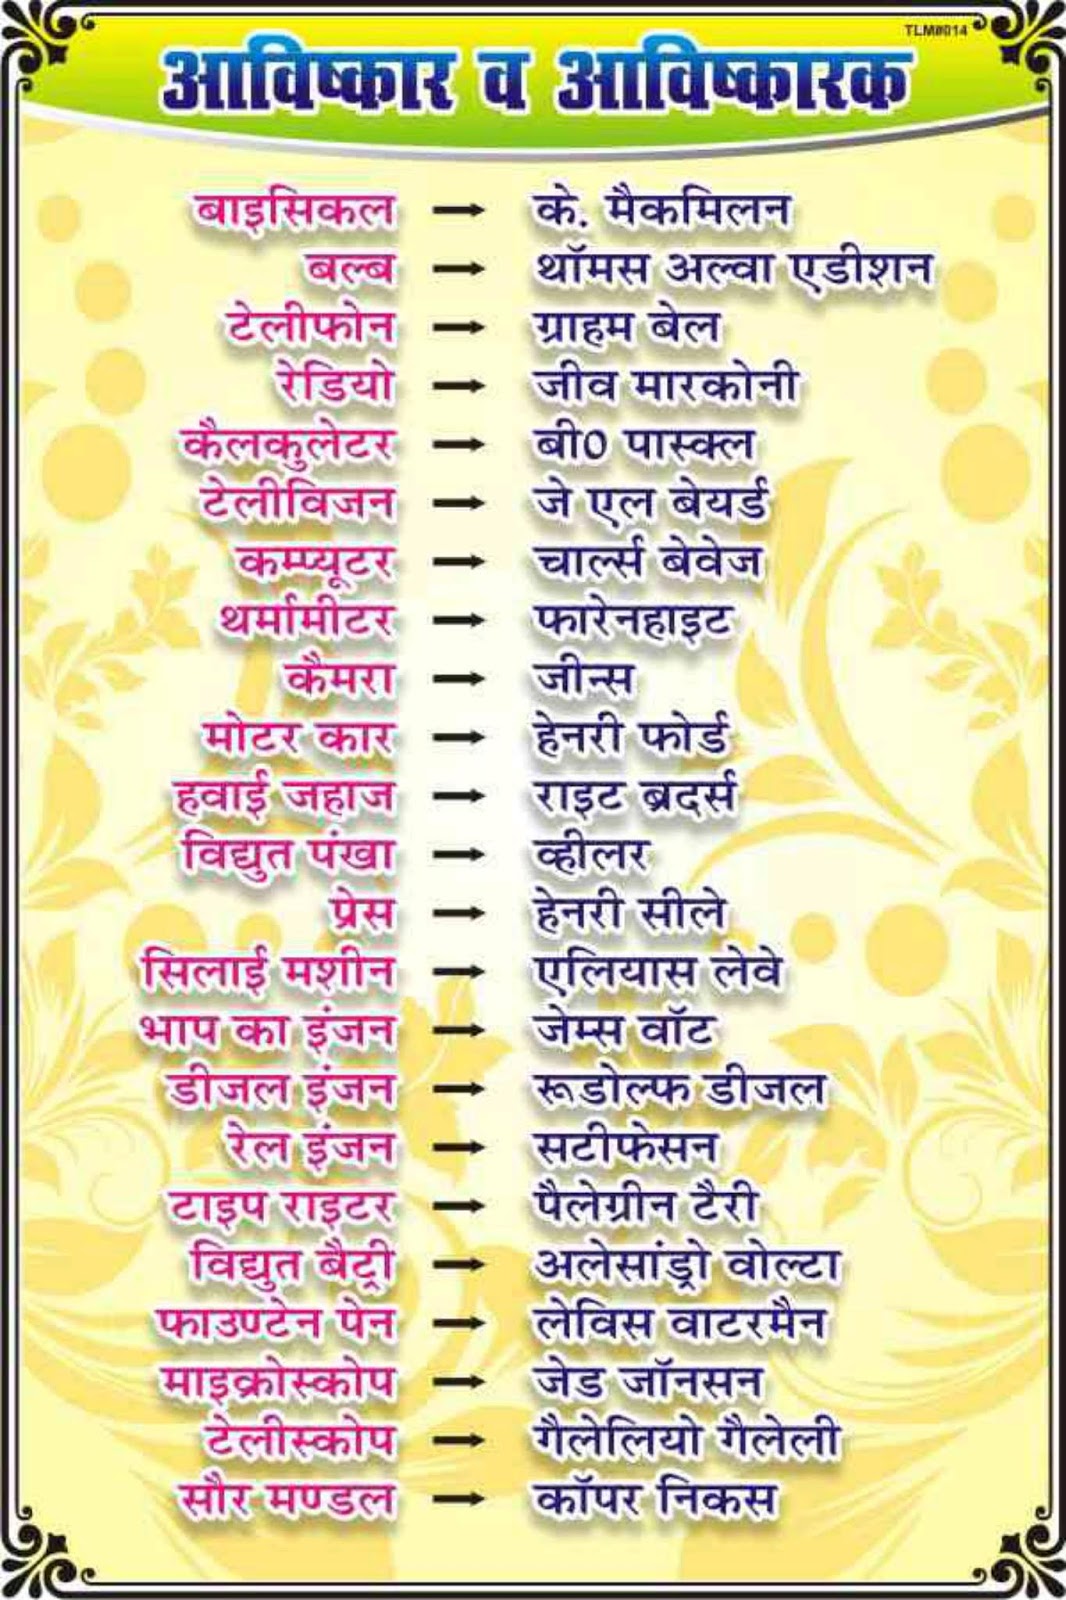 TLM#014
आविष्कार व आविष्कारक
बाइसिकल → के. मैकमिलन
बल्ब → थॉमस अल्वा एडीशन
टेलीफोन → ग्राहम बेल
रेडियो → जीव मारकोनी
कैलकुलेटर → बी0 पास्क्ल
टेलीविजन → जे एल बेयर्ड
कम्प्यूटर → चार्ल्स बेवेज
थर्मामीटर → फारेनहाइट
कैमरा → जीन्स
मोटर कार → हेनरी फोर्ड
हवाई जहाज → राइट ब्रदर्स
विद्युत पंखा → व्हीलर
प्रेस → हेनरी सीले
सिलाई मशीन → एलियास लेवे
भाप का इंजन → जेम्स वॉट
डीजल इंजन → रूडोल्फ डीजल
रेल इंजन → सटीफेसन
टाइप राइटर → पैलेग्रीन टैरी
विद्युत बैट्री → अलेसांड्रो वोल्टा
फाउण्टेन पेन → लेविस वाटरमैन
माइक्रोस्कोप → जेड जॉनसन
टेलीस्कोप → गैलेलियो गैलेली
सौर मण्डल → कॉपर निकस